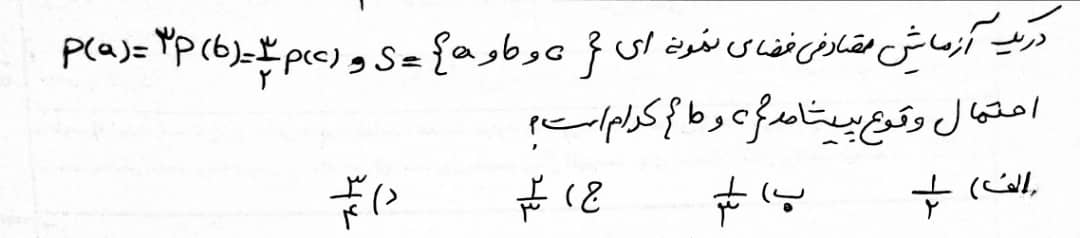 در یک آزمایش تصادفی فضای نمونه ای S = {a و b و c} و P(a) = ۳P(b) = ۳/۲ P(c)
احتمال وقوع پیشامد {b و c} کدام است؟
الف) ۱/۲ ب) ۱/۳ ج) ۲/۳ د) ۳/۴